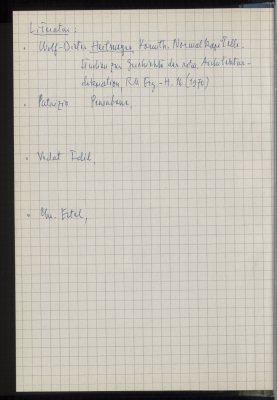 Literatur:
• Wolf-Dieter Heilmeyer, Korinth. Normalkapitelle.
Studien zur Geschichte der röm. Architektur-
dekoration, RM Erg.-H. 16 (1970)
• Patrizio Pensabene,
• Vedat Idil,
• Chr. Ertel,